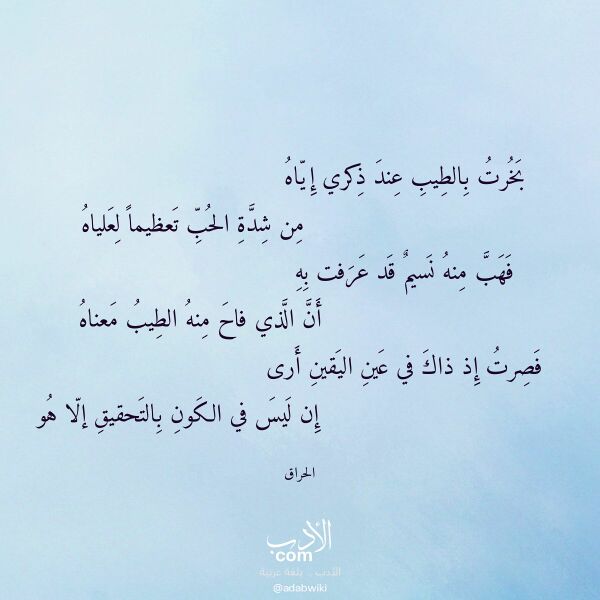 بَخُرتُ بِالطِيبِ عِندَ ذِكري إِيّاهُ
مِن شِدَّةِ الحُبِّ تَعظيماً لِعَلياهُ
فَهَبَّ مِنهُ نَسيمٌ قَد عَرَفت بِهِ
أَنَّ الَّذي فاحَ مِنهُ الطيبُ مَعناهُ
فَصِرتُ إِذ ذاكَ في عَينِ اليَقينِ أَرى
إِن لَيسَ في الكَونِ بِالتَحقيقِ إلّا هُو
الحراق
الأدب
com
الأدب .. بلغة عربية
@adabwiki